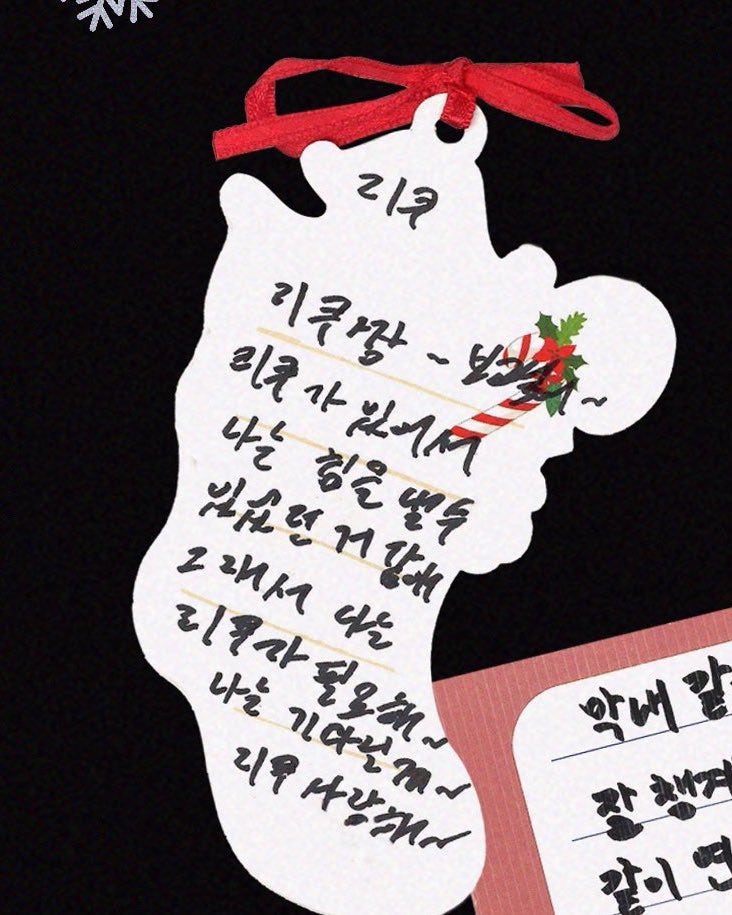 리쿠
리쿠짱 ~ 보고싶어~
리쿠가 있어서
나는 힘을 낼 수
있었던 거 같애
그래서 나는
리쿠가 필요해~
나는 기다릴게~
리쿠 사랑해~
막내 같
잘 챙겨
같이 연